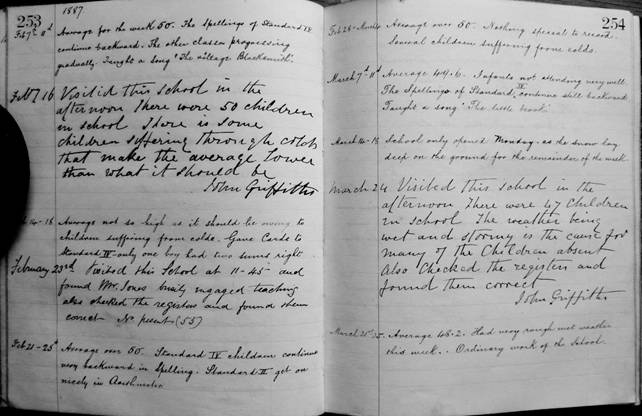 253
1887
Feb 7th 11th Average for the week 50. The Spellings of Standard IV
continue backward. The other classes progressing
gradually. Taught a song "The village Blacksmith".
Feb 16 Visited this school in the
afternoon There were 50 children
in school There is some
children suffering through colds
that make the average lower
than what it should be
John Griffiths
14 - 18 Average not so high as it should be owing to
children suffering from colds. Gave Cards to
Standard IV - only one boy had two sums right
February 23rd Visited this School at 11-45 and
found Mr. Jones busily engaged teaching
also checked the registers and found them
correct No present (55)
Feb 21 - 25th Average over 50. Standard IV children continue
very backward in Spelling. Standard II get on
nicely in Arithmetic
254
Feb 28 - March 4 Average over 50. Nothing special to record.
Several children suffering from colds.
March 7th - 11th Average 44.6. Infants not attending very well.
The Spellings of Standard IV continue still backward
Taught a song "The little brook"
March 14 - 18 School only opened Monday as the snow lay
deep on the ground for the remainder of the week
March 24 Visited this school in the
afternoon There were 47 Children
in school The weather being
wet and stormy is the cause for
many of the Children absent
Also Checked the registers and
found them correct
John Griffiths
March 21st 25. Average 48.2. Had very rough wet weather
this week. Ordinary work of the School.